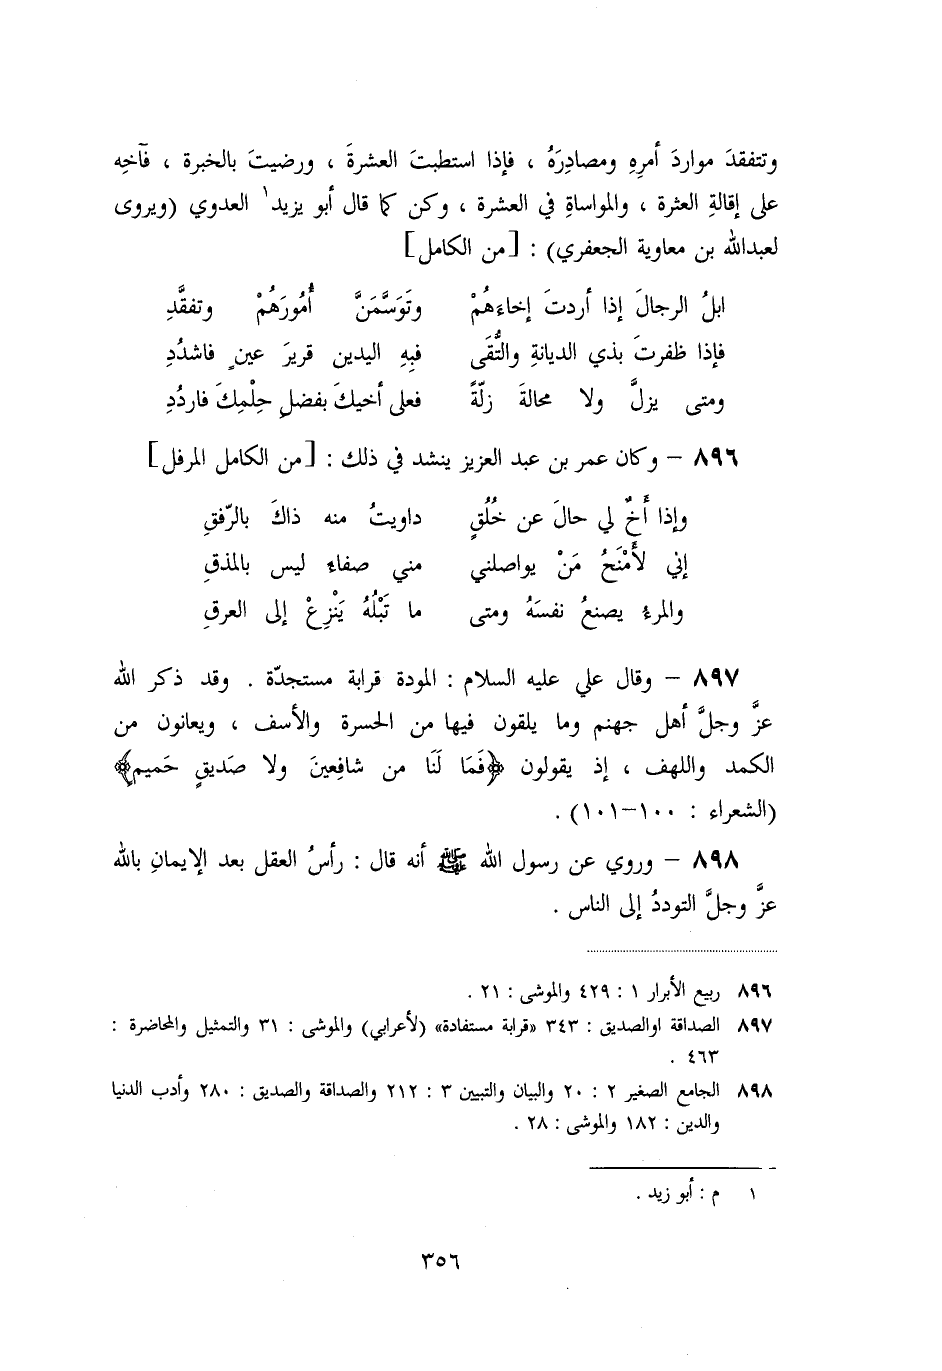 وتتفقدَ مواردَ أمرِهِ ومصادِرَهُ ، فإذا استطبتَ العشرةَ ، ورضيتَ بالخبرة ، فآخِه
على إقالةِ العثرة ، والمواساةِ في العشرة ، وكن كما قال أبو يزيد١ العدوي (ويروى
لعبدالله بن معاوية الجعفري) : [من الكامل]
ابلُ الرجالَ إذا أردتَ إخاءَهُمْ وتَوَسَّمَنَّ أُمُورَهُمْ وتفقَّدِ
فإذا ظفرتَ بذي الديانةِ والتُّقَى فبِهِ اليدين قريرَ عينٍ فاشدُدِ
ومتى يزلَّ ولا محالةَ زلّةً فعلى أخيكَ بفضلِ حِلْمِكَ فاردُدِ
٨٩٦ – وكان عمر بن عبد العزيز ينشد في ذلك : [من الكامل المرفل]
وإذا أَخٌ لي حالَ عن خُلُقٍ داويتُ منه ذاكَ بالرّفقِ
إني لأَمْنَحُ مَنْ يواصلني مني صفاء ليس بالمذقِ
والمرء يصنعُ نفسَهُ ومتى ما تَبْلُهُ يَنْزِعْ إلى العرقِ
٨٩٧ – وقال علي عليه السلام : المودة قرابة مستجدّة . وقد ذكر الله
عزَّ وجلَّ أهل جهنم وما يلقون فيها من الحسرة والأسف ، ويعانون من
الكمد واللهف ، إذ يقولون ﴿فَمَا لَنَا من شافِعينَ ولا صَديقٍ حَميم﴾
(الشعراء : ١٠٠–١٠١) .
٨٩٨ – وروي عن رسول الله ﷺ أنه قال : رأسُ العقل بعد الإيمانِ بالله
عزَّ وجلَّ التوددُ إلى الناس .
٨٩٦ ربيع الأبرار ١ : ٤٢٩ والموشى : ٢١ .
٨٩٧ الصداقة اوالصديق : ٣٤٣ «قرابة مستفادة» (لأعرابي) والموشى : ٣١ والتمثيل والمحاضرة :
٤٦٣ .
٨٩٨ الجامع الصغير ٢ : ٢٠ والبيان والتبيين ٣ : ٢١٢ والصداقة والصديق : ٢٨٠ وأدب الدنيا
والدين : ١٨٢ والموشى : ٢٨ .
١ م : أبو زيد .
٣٥٦